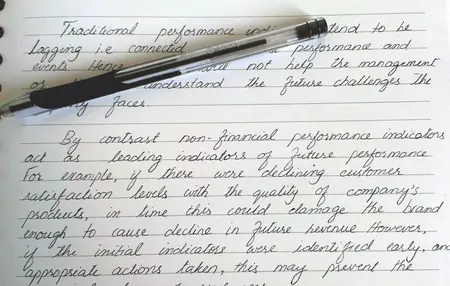 Traditional performance tend to be
lagging i.e connected performance and
events. Hence not help the management
or understand the future challenges the
faces.
By contrast non-financial performance indicators
act as leading indicators of future performance
For example, if there were declining customer
satisfaction levels with the quality of company's
products, in time this could damage the brand
enough to cause decline in future revenue However,
if the initial indicators were identified early, and
appropriate actions taken, this may prevent the